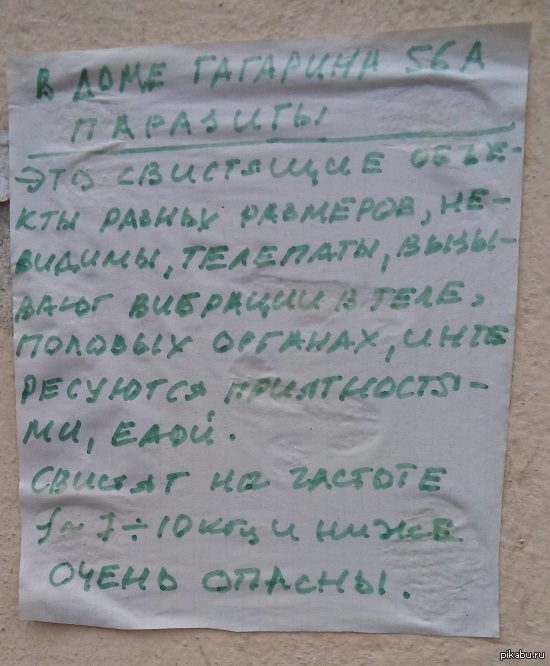 В ДОМЕ ГАГАРИНА 56А
ПАРАЗИТЫ
ЭТО СВИСТЯЩИЕ ОБЪЕ-
КТЫ РАЗНЫХ РАЗМЕРОВ, НЕ-
ВИДИМЫ, ТЕЛЕПАТЫ, ВЫЗЫ-
ВАЮТ ВИБРАЦИИ В ТЕЛЕ,
ПОЛОВЫХ ОРГАНАХ, ИНТЕ
РЕСУЮТСЯ ПРИЯТНОСТЯ-
МИ, ЕДОЙ.
СВИСТЯТ НА ЧАСТОТЕ
f ~ 7 ÷ 10 КГЦ И НИЖЕ
ОЧЕНЬ ОПАСНЫ.
pikabu.ru